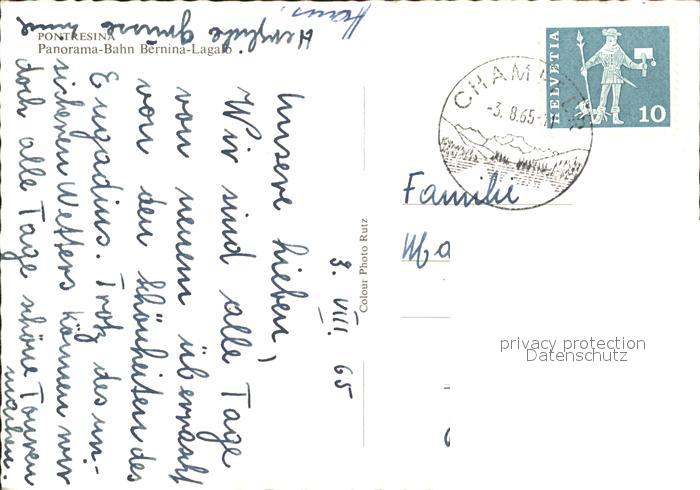 PONTRESINA
Panorama-Bahn Bernina-Lagalb
3. VIII. 65
Unsere Lieben,
Wir sind alle Tage
von neuem überrascht
von den Schönheiten des
Engadins. Trotz des un-
sicheren Wetters können wir
doch alle Tage schöne Touren
machen.
Herzliche Grüsse
Colour Photo Rutz
HELVETIA
10
-3.8.65-
Familie
Ma
privacy protection
Datenschutz